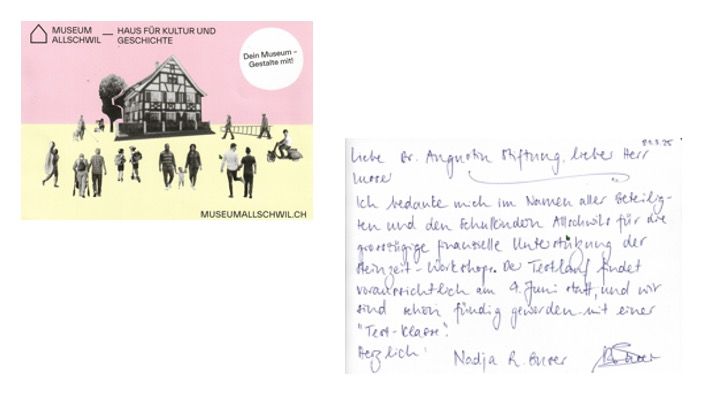 MUSEUM — HAUS FÜR KULTUR UND
ALLSCHWIL GESCHICHTE
Dein Museum –
Gestalte mit!
MUSEUMALLSCHWIL.CH
Liebe Dr. Augustin Stiftung, lieber Herr
Moser
Ich bedanke mich im Namen aller Beteilig-
ten und den Schulkindern Allschwils für die
grosszügige finanzielle Unterstützung der
Steinzeit-Workshops. Der Testlauf findet
voraussichtlich am 9. Juni statt, und wir
sind schon fündig geworden mit einer
"Test-Klasse".
Herzlich! Nadja R.